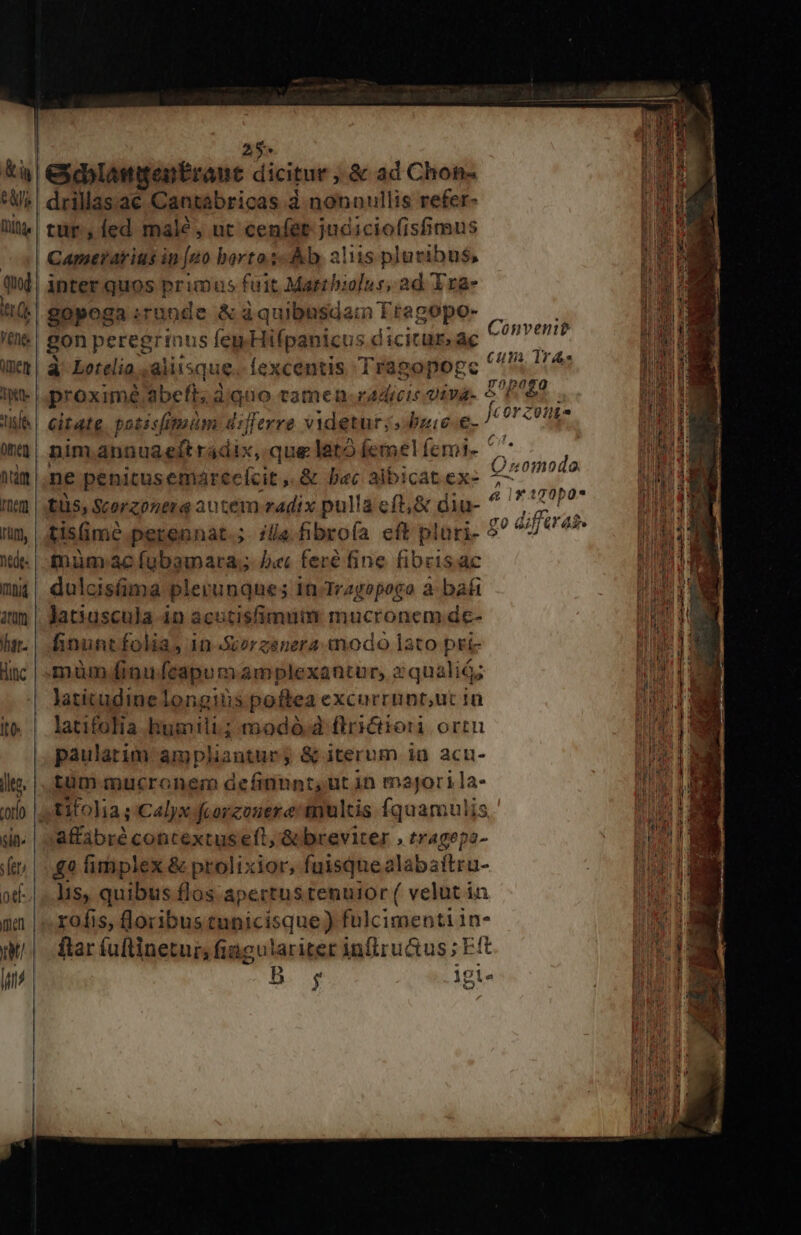 25.
Schlangenkraut dicitur ; & ad Chon-
drillas ac Cantabricas à nonnullis refer-
tur, sed malè, ut censet judiciosissimus
Camerarius in suo horto: Ab aliis pluribus,
inter quos primus fuit Matthiolus, ad Tra-
gopoga : unde & à quibusdam Tragopo-
gon peregrinus seu Hispanicus dicitur, ac
à Lotelio, aliisque. sexcentis Tragopogc
proximè abest, à quo tamen radicis viva-
citate potissimùm differre videtur; huic e-
nim annua est radix, quæ lató semel semi-
ne penitus emarcescit, & hæc albicat ex-
tùs, Scorzonera autem radix pulla est, & diu-
tissimè perennat; illa fibrosa est pluri-
mùm ac subamara; hæc ferè sine fibris ac
dulcissima plerunque; in Tragopogo à basi
latiuscula in acutissimum mucronem de-
sinunt folia, in Scorzonera modò lato pri-
mùm sinu scapum amplexantur, æqualiq;
latitudine longiùs postea excurrunt, ut in
latifolia humili; modò à strictiori ortu
paulatim ampliantur; & iterum in acu-
tùm mucronem desinunt, ut in majori la-
tifolia; Calyx scorzoneræ multis squamulis
affabrè contextus est, & breviter, tragopo-
go simplex & prolixior, suisque alabastru-
lis, quibus flos apertus tenuior ( velut in
rosis, floribus tunicisque ) fulcimenti in-
star sustinetur, singulariter instructus; Est
B 5 igi-
Convenit
cum Tra-
gopogo
& 
scorzone-
Quomodo
à Tragopo-
go differat.